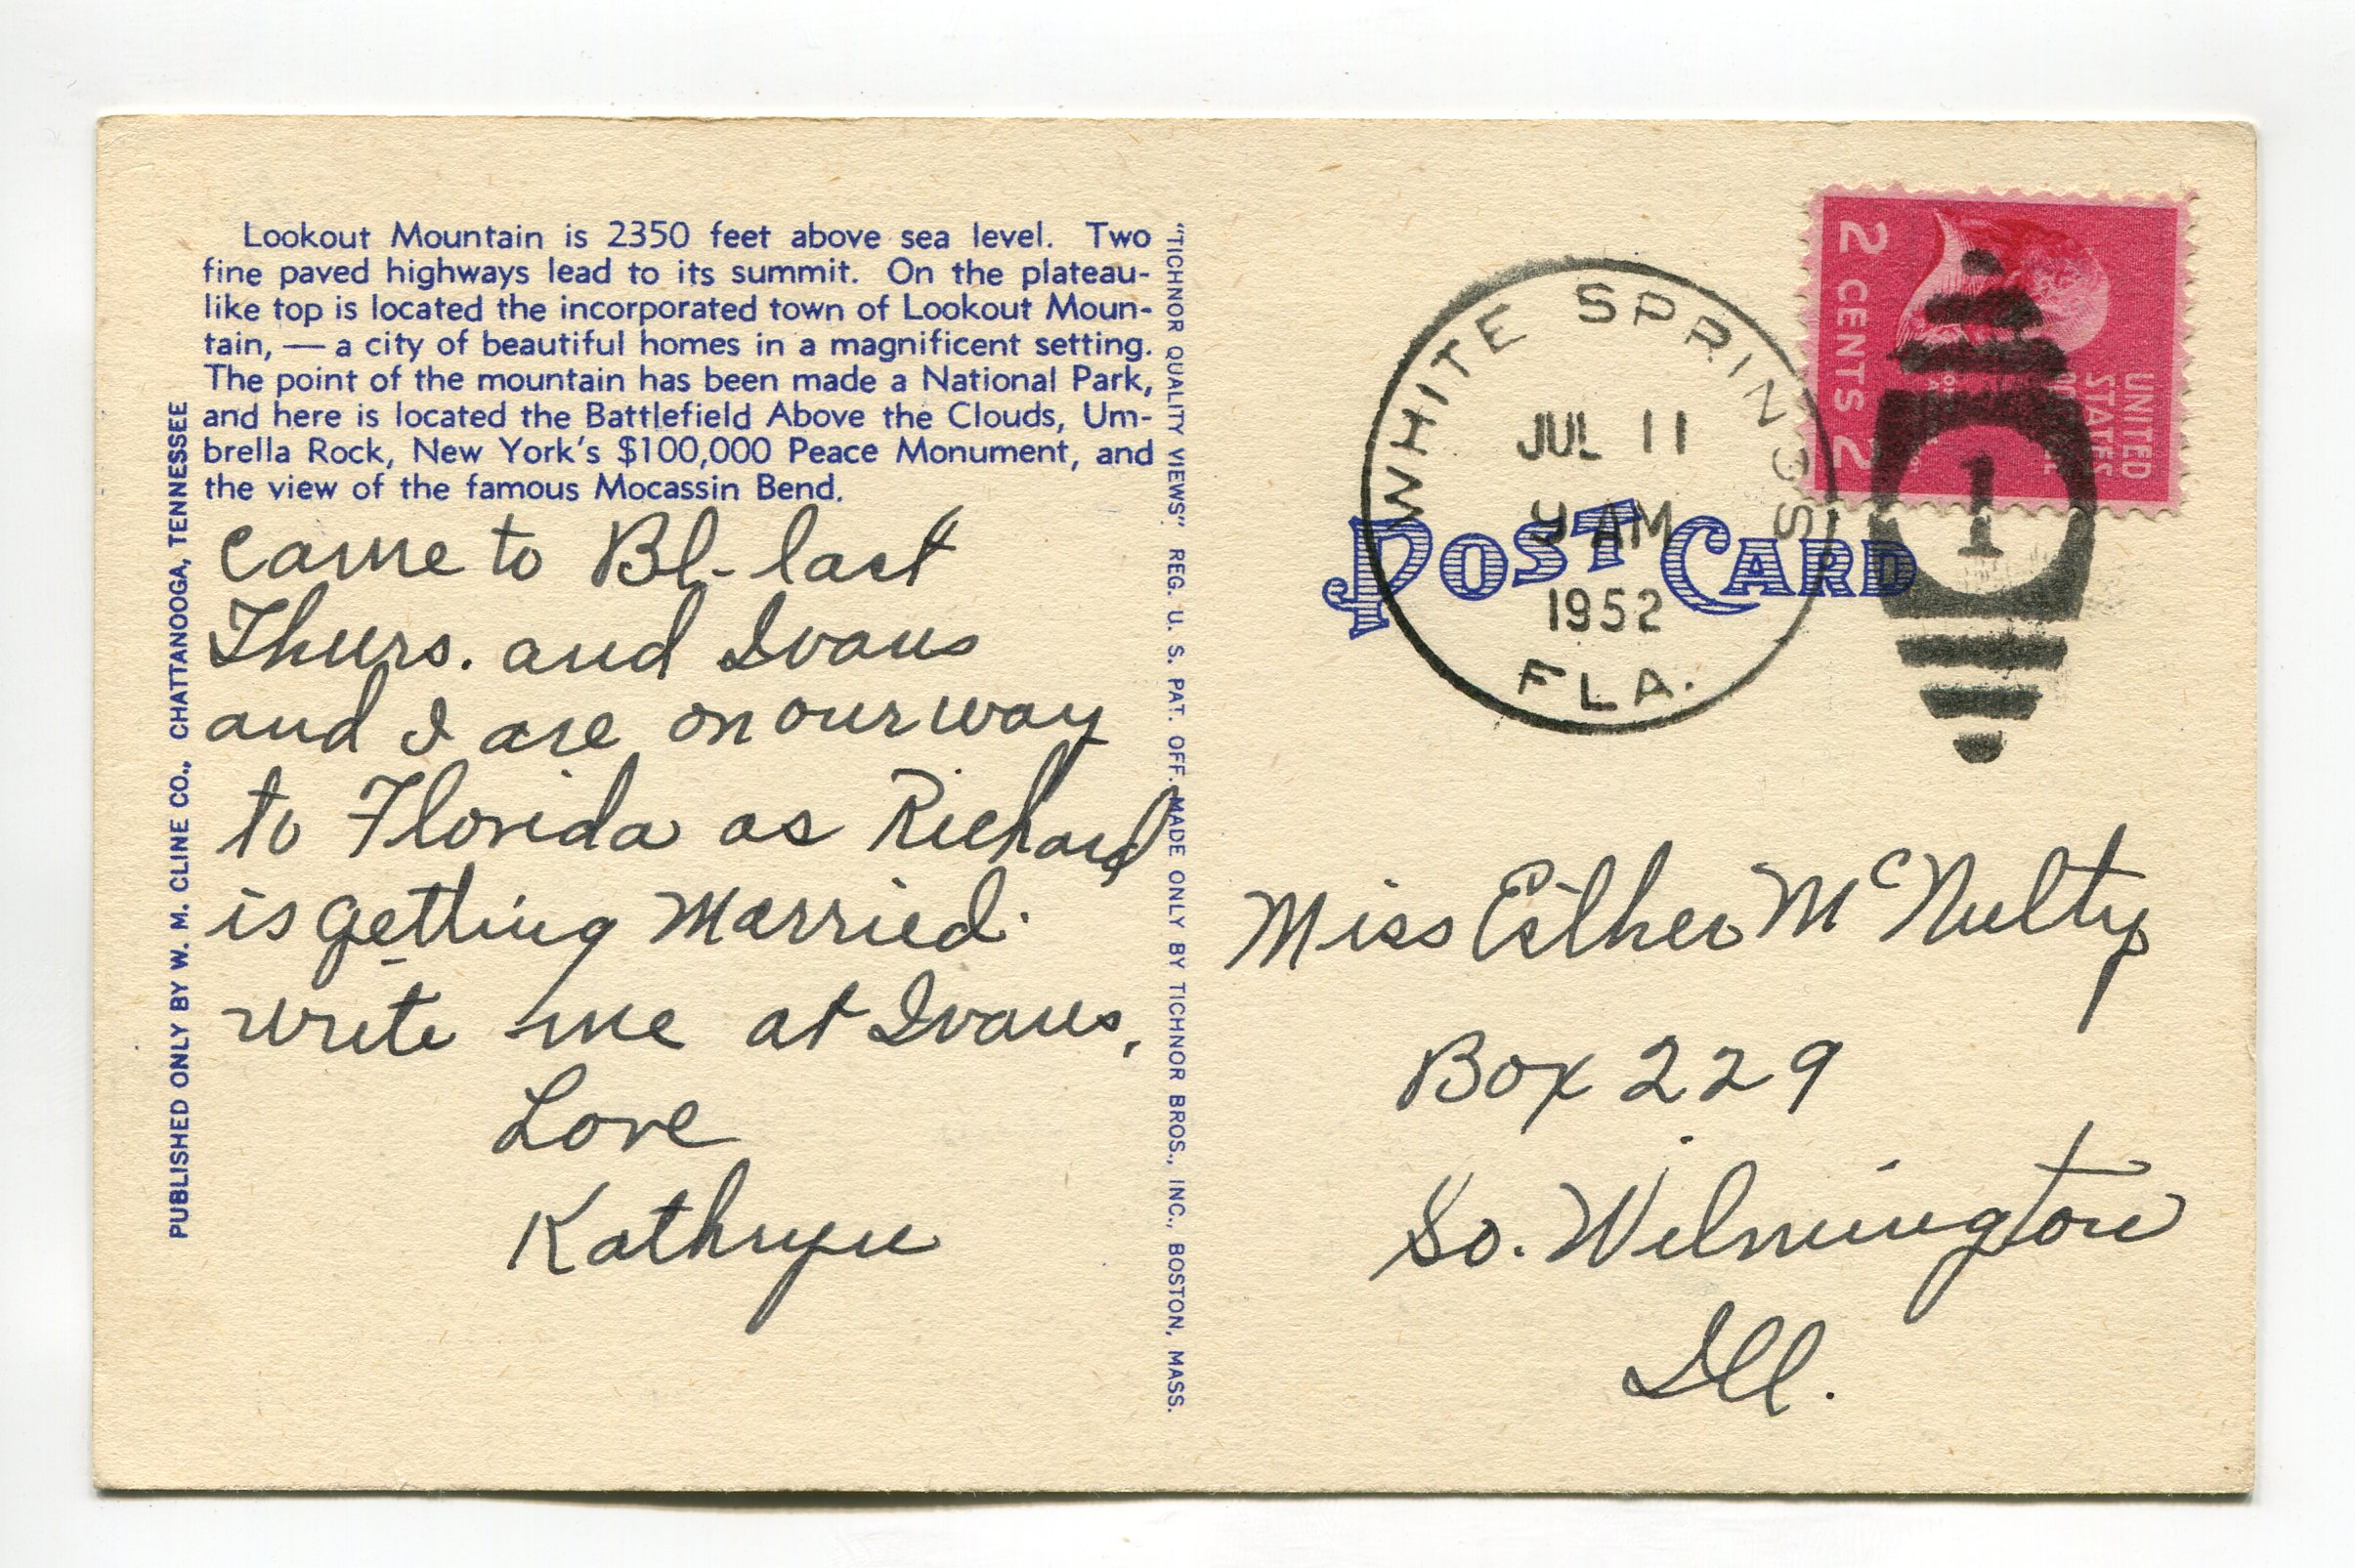 Lookout Mountain is 2350 feet above sea level. Two
fine paved highways lead to its summit. On the plateau-
like top is located the incorporated town of Lookout Moun-
tain, — a city of beautiful homes in a magnificent setting.
The point of the mountain has been made a National Park,
and here is located the Battlefield Above the Clouds, Um-
brella Rock, New York's $100,000 Peace Monument, and
the view of the famous Mocassin Bend.
Came to Bl- last
Thurs. and Ivans
and I are on our way
to Florida as Richard
is getting Married.
write me at Ivans,
Love
Kathryn
PUBLISHED ONLY BY W. M. CLINE CO., CHATTANOOGA, TENNESSEE
"TICHNOR QUALITY VIEWS" REG. U. S. PAT. OFF. MADE ONLY BY TICHNOR BROS., INC., BOSTON, MASS.
POST CARD
WHITE SPRINGS
JUL 11
9 AM
1952
FLA.
2 CENTS 2
UNITED
STATES
1
Miss Esther McNulty
Box 229
So. Wilmington
Ill.